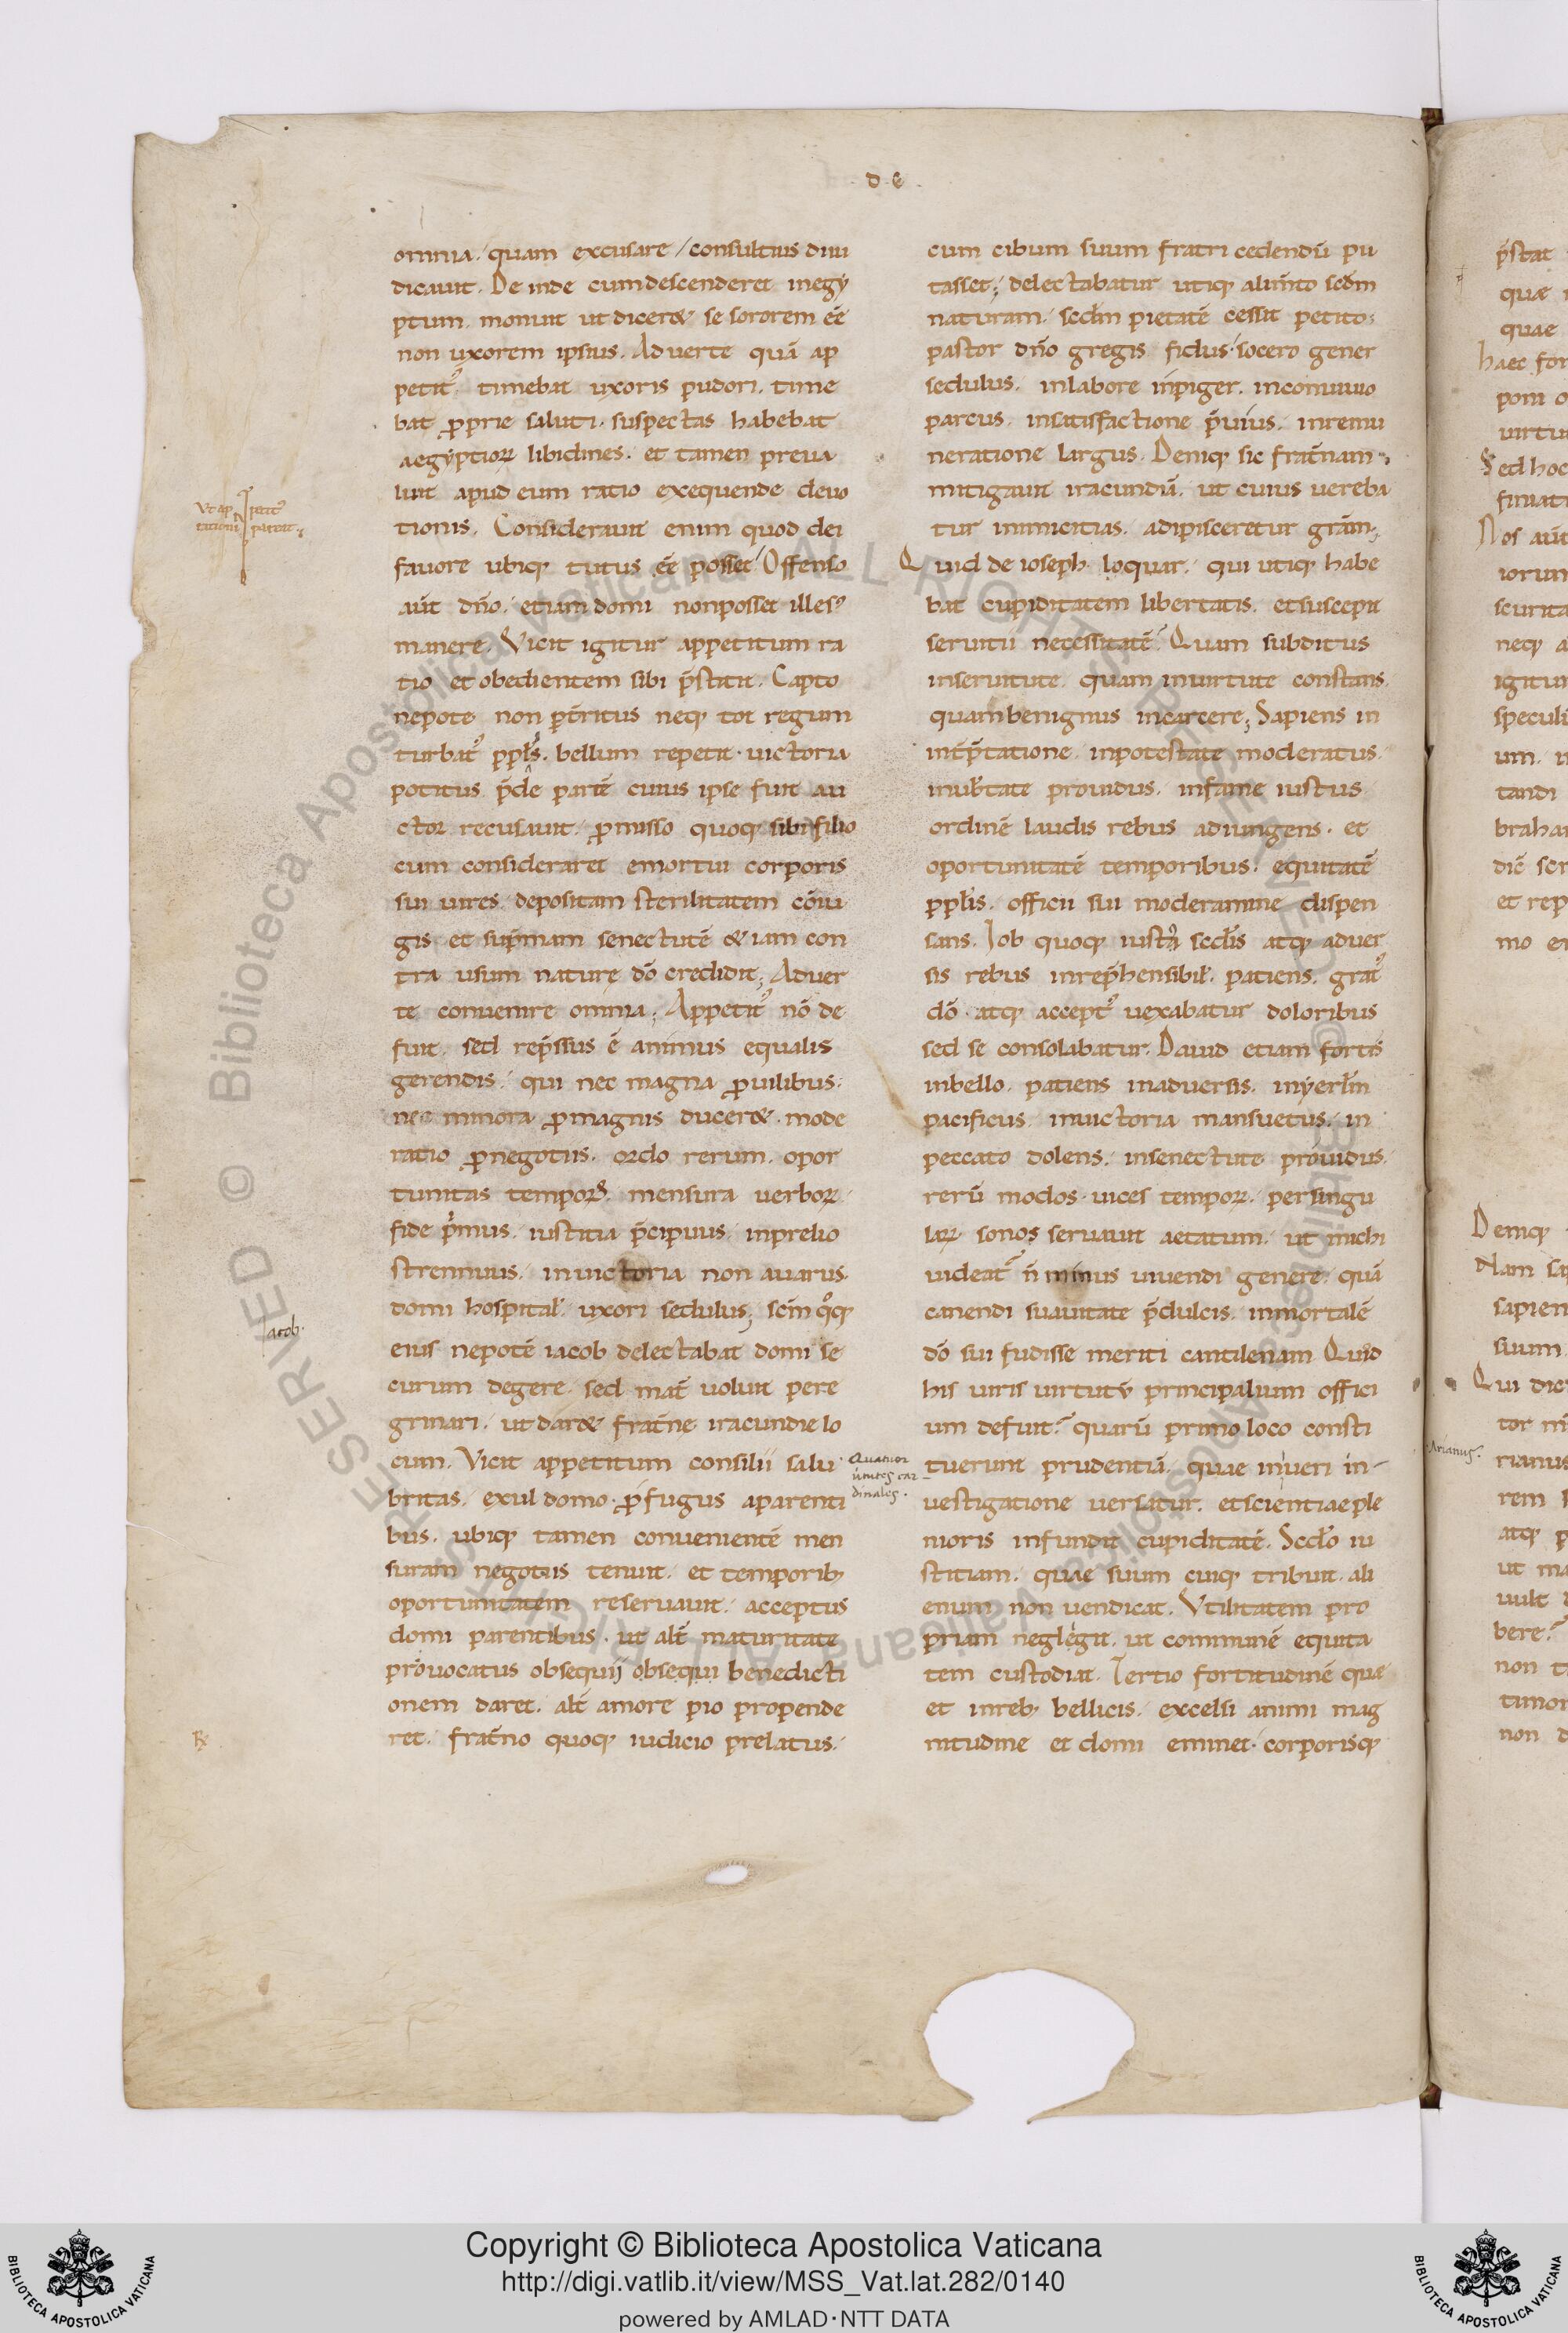 . d . e .
omnia. quam excusare / consultius diiu
dicauit. De inde cumdescenderet inegy
ptum. monuit ut dicer& se sororem ēē
non uxorem ipsius. Aduerte quā ap
petit᾽ timebat uxoris pudori. time
bat ꝓprie saluti. suspectas habebat
aegyptioꝝ libidines. et tamen preua
luit apud eum ratio exequende deuo
tionis. Considerauit enim quod dei
fauore ubiqꝫ tutus ēē posset / Offenso
aūt dn̄o. etiam domi nonposset illes᾽
manere. Vicit igitur appetitum ra
tio et obedientem sibi p̄stitit. Capto
nepote non pt̄ritus neqꝫ tot regum
turbat᾽ ppl̄s. bellum repetit. uictoria
potitus p̄de partē cuius ipse fuit au
ctor recusauit. ꝓmisso quoqꝫ sibi filio
cum consideraret emortui corporis
sui uires. depositam sterilitatem cōiu
gis. et sup̄mam senectutē & iam con
tra usum naturę dō credidit; Aduer
te conuenire omnia; Appetit᾽ nō de
fuit. sed rep̄ssus ē animus equalis
gerendis. qui nec magna ꝓuilibus.
nec minora ꝓmagnis ducer&. mode
ratio ꝓnegotiis. ordo rerum. opor
tunitas tempoꝝ. mensura uerboꝝ.
fide p̍mus. iustitia p̄cipuus. inprelio
strennuus. inuictoria non auarus.
domi hospital̄. uxori sedulus; sc̄m qͦqꝫ
eius nepotē iacob delectabat domi se
curum degere. sed mat̄ uoluit pere
grinari. ut dar& frat̄ne iracundie lo
cum. Vicit appetitum consilii salu
britas. exul domo. ꝓfugus aparenti
bus. ubiqꝫ tamen conuenientē men
suram negotiis tenuit. et temporibꝫ
oportunitatem reseruauit. acceptus
domi parentibus. ut alt̄ maturitate
prouocatus obsequii obsequi benedicti
onem daret. alt̄ amore pio propende
ret. frat̄no quoqꝫ iudicio prelatus.
Vt ap petit᾽
rationi pareat.
Iacob.
cum cibum suum fratri cedendū pu
tasset; delectabatur utiqꝫ alim̄to scd̄m
naturam. scd̄m pietatē cessit petito.
pastor dn̄o gregis fidus. socero gener
sedulus. inlabore inpiger. inconuiuio
parcus. insatisfactione p̄uius. inremu
neratione largus. Deniqꝫ sic frat̄nam
mitigauit iracundiā. ut cuius uereba
tur inimicitias. adipisceretur grām;
Quid de ioseph loquar. qui utiqꝫ habe
bat cupiditatem libertatis. etsuscepit
seruitii necessitatē? Quam subditus
inseruitute. quam inuirtute constans.
quambenignus incarcere; Sapiens in
int̄p̄tatione. inpotestate moderatus.
inub̄tate prouidus. infame iustus.
ordinē laudis rebus adiungens. et
oportunitatē temporibus. equitatē
ppl̄is. officii sui moderamine dispen
sans. Iob quoqꝫ iuxta scd̄is atqꝫ aduer
sis rebus inrep̄hensibil̄. patiens. grat᾽
dō. atqꝫ accept᾽ uexabatur doloribus
sed se consolabatur. Dauid etiam fortis
inbello. patiens inaduersis. inyerl̄m
pacificus. inuictoria mansuetus. in
peccato dolens. insenectute prouidus.
rerū modos. uices tempoꝝ. persingu
laꝝ sonos seruauit aetatum. ut michi
uideat᾽ n̄ minus uiuendi genere. quā
canendi suauitate p̄dulcis. inmortalē
dō sui fudisse meriti cantilenam Quid
his uiris uirtutū principalium offici
um defuit? quarū primo loco consti
tuerunt prudentiā. quae inueri in-
uestigatione uersatur. etscientiaeple
nioris infundit cupiditatē. Scd̄o iu
stitiam. quae suum cuiqꝫ tribuit. ali
enum non uendicat. Vtilitatem pro
priam neglegit. ut communē equita
tem custodiat. Tertio fortitudinē quae
et inrebꝫ bellicis. excelsi animi mag
nitudine et domi eminet. corporisqꝫ
Quatuor
uirtutes car-
dinales.
p̄stat
quae
Haec for
poni
Sed hoc
Nos aūt
iorum
neqꝫ
igitur
speculi
um.
tandi
braha
et rep
Deniqꝫ
Nam sap
sapien
suum.
Qui dic
rianus
rem
atqꝫ
ut ma
uult
bere?
non
timor
non
Arianus.
Copyright © Biblioteca Apostolica Vaticana
http://digi.vatlib.it/view/MSS_Vat.lat.282/0140
powered by AMLAD·NTT DATA
BIBLIOTECA APOSTOLICA VATICANA
BIBLIOTECA APOSTOLICA VATICANA